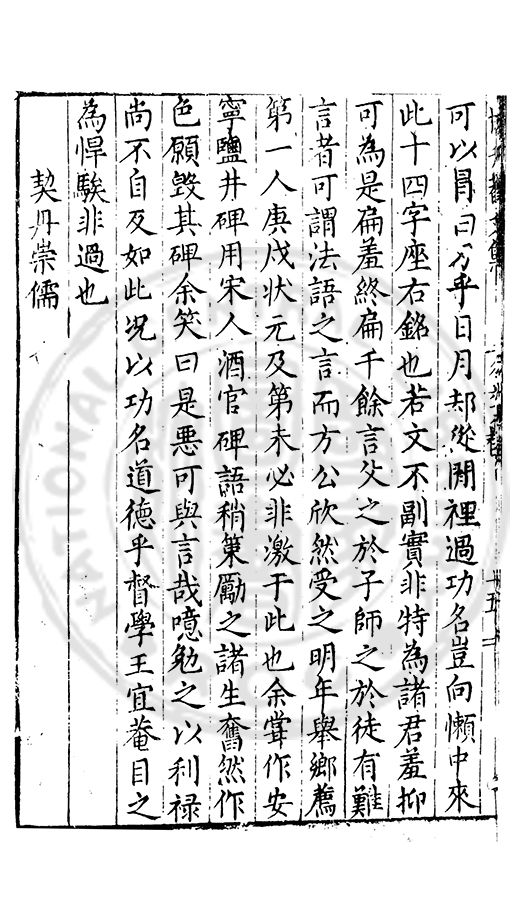 可以胃曰乎日月却從閒裡過功名豈向懶中來
此十四字座右銘也若文不副實非特為諸君羞抑
可為是扁羞終扁千餘言父之於子師之於徒有難
言者可謂法語之言而方公欣然受之明年舉鄉薦
第一人庚戌狀元及第未必非激于此也余嘗作安
寧鹽井碑用宋人酒官碑語稍策勵之諸生奮然作
色願毀其碑余笑曰是惡可與言哉噫勉之以利祿
尚不自及如此况以功名道德乎督學王宜菴目之
為悍騃非過也
契丹崇儒